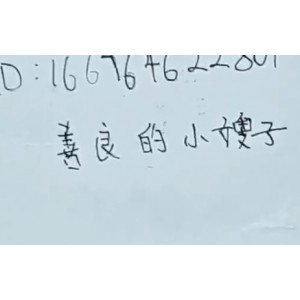 D:166764622801
善良的小嫂子